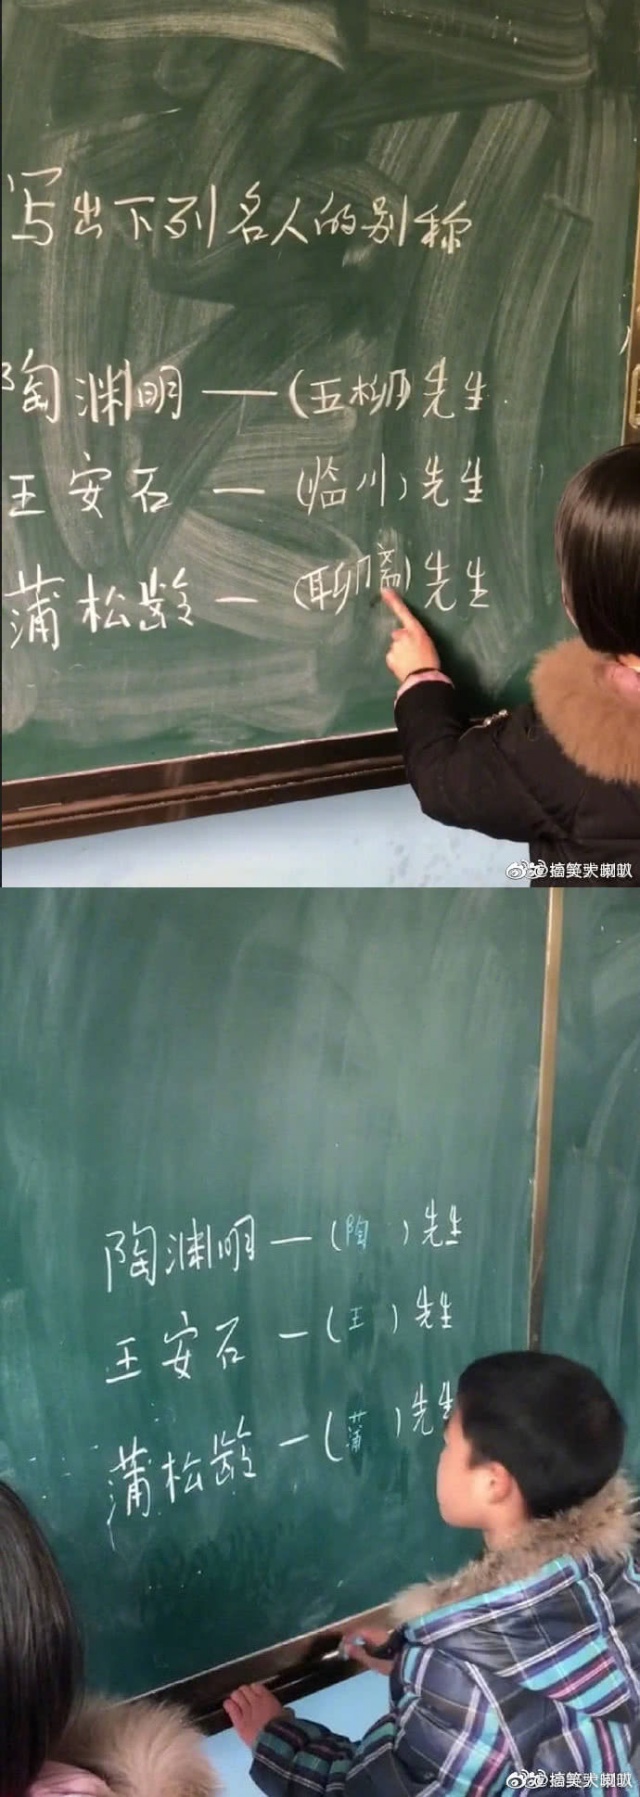 写出下列名人的别称
陶渊明——(五柳)先生
王安石—(临川)先生
蒲松龄—(聊斋)先生
@搞笑大喇叭
陶渊明—(陶 )先生
王安石—(王 )先生
蒲松龄—(蒲 )先生
@搞笑大喇叭